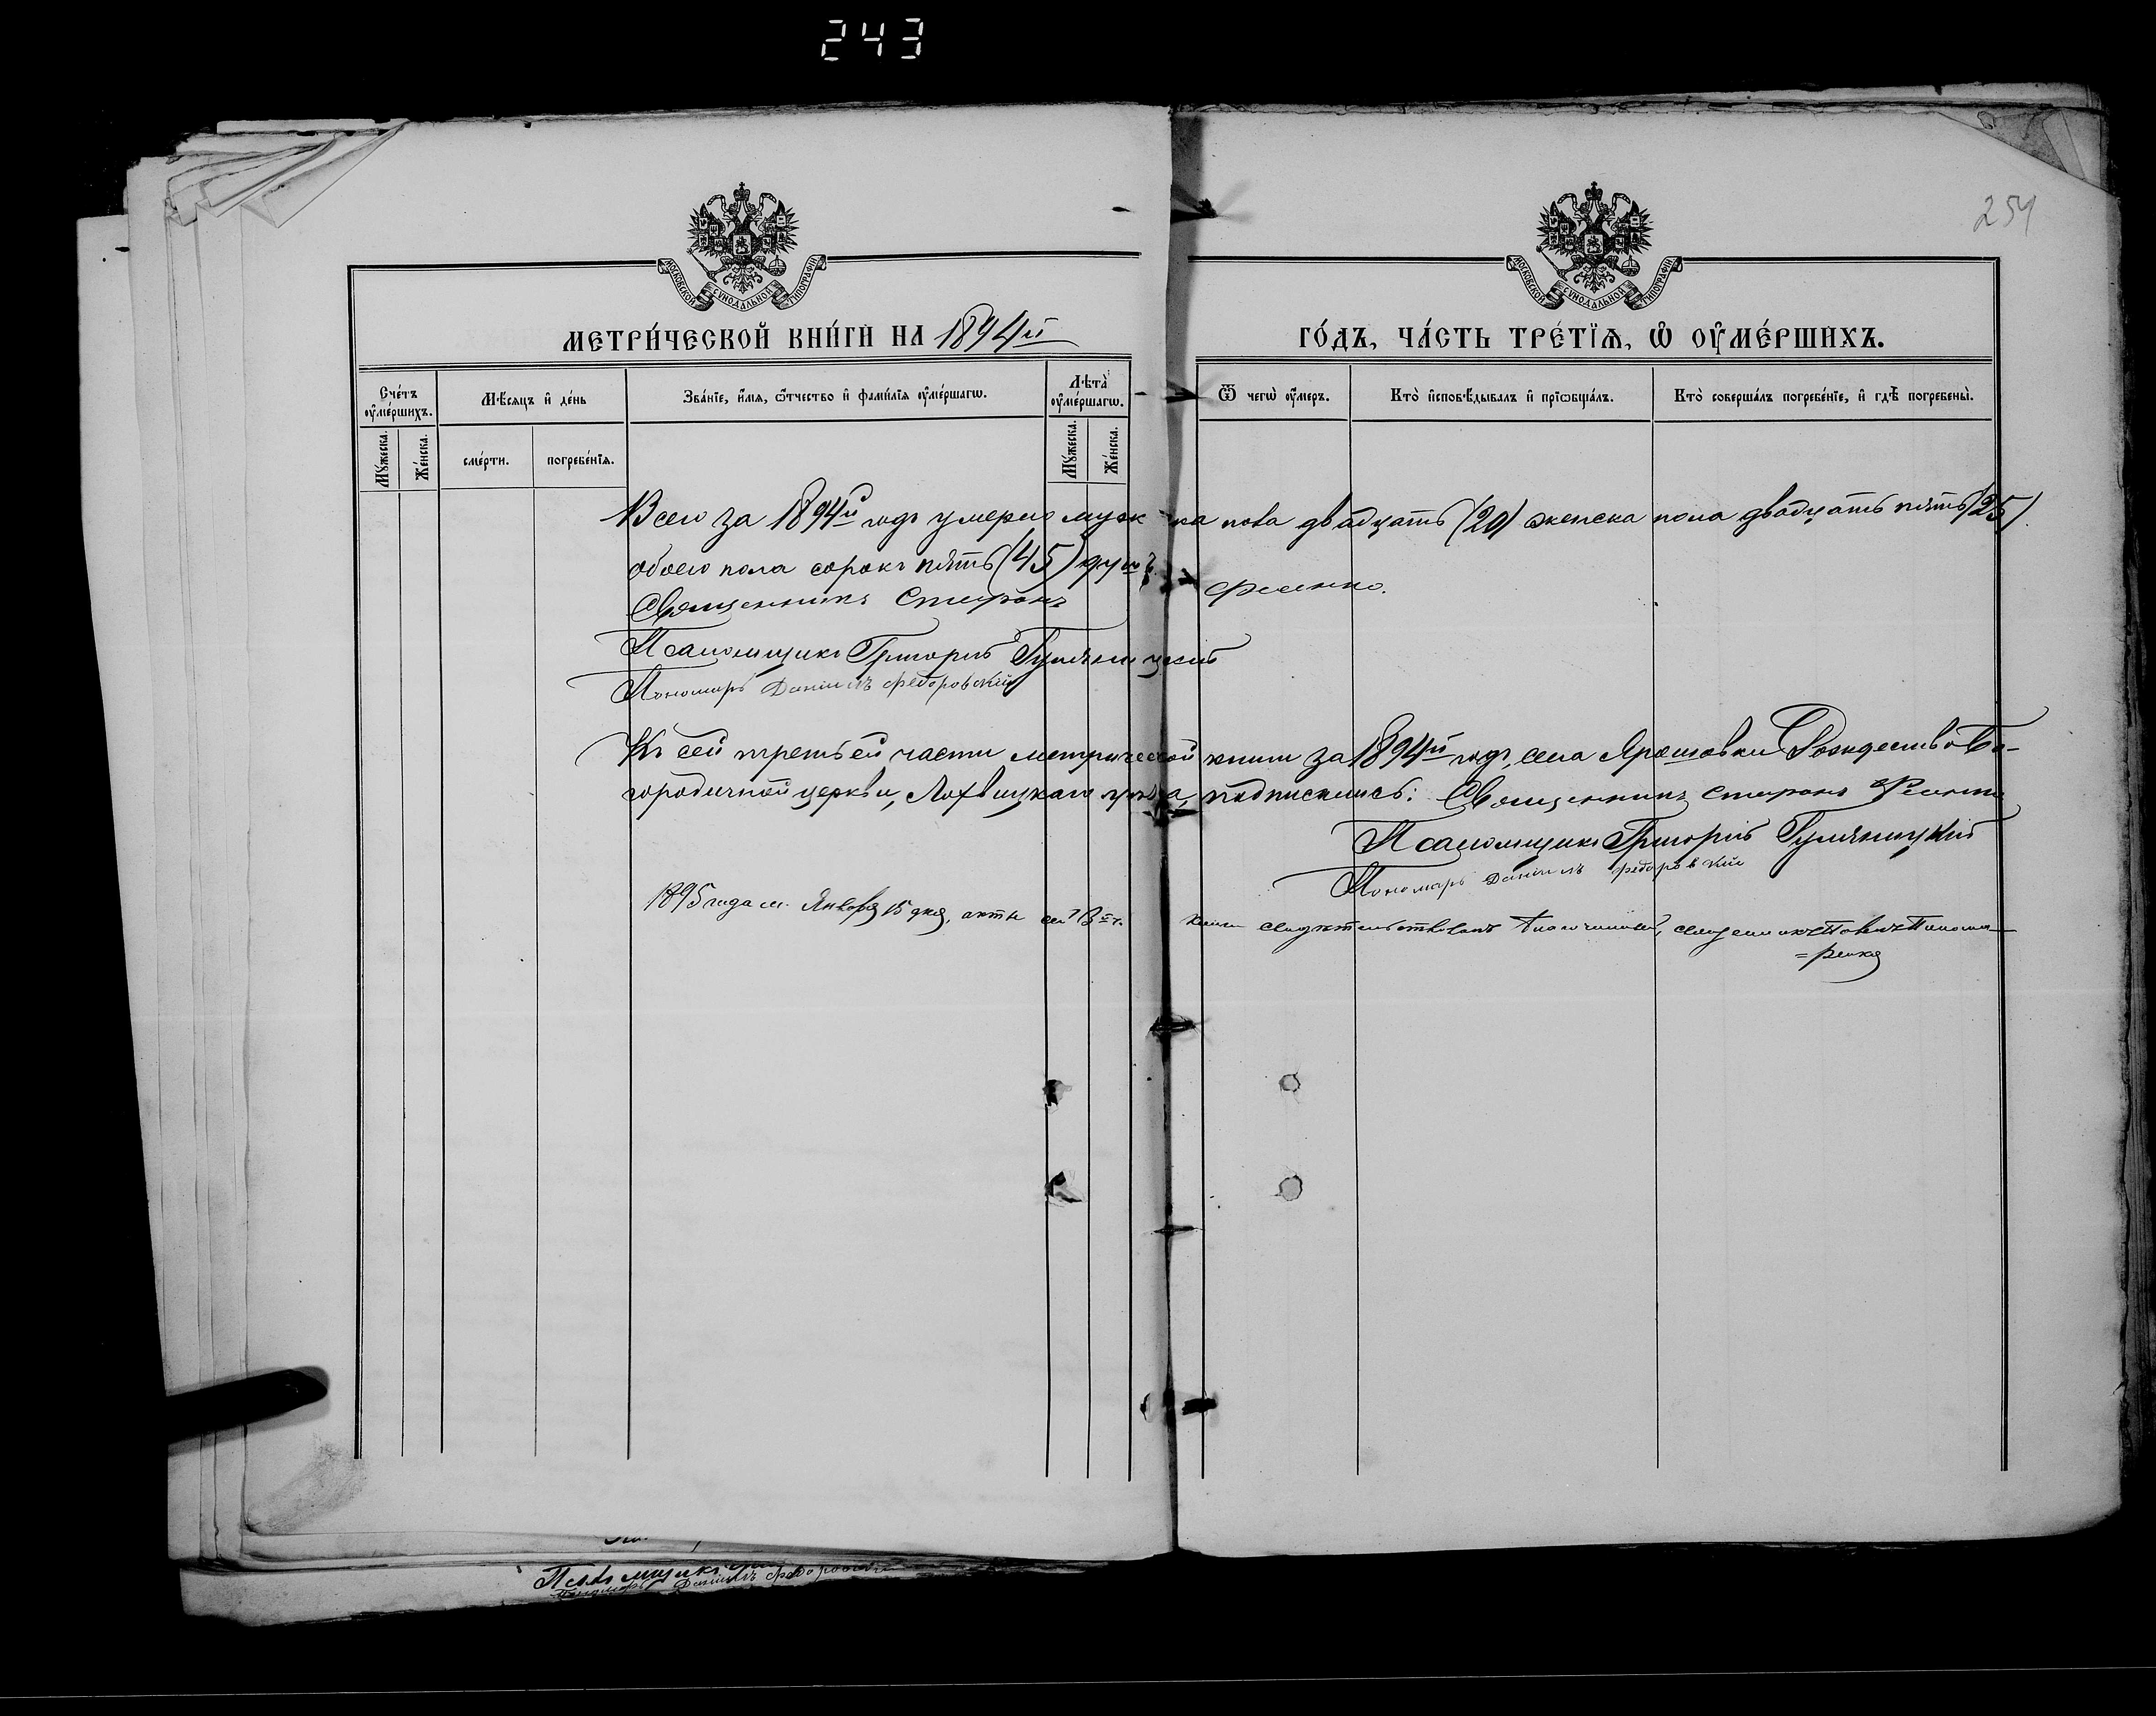 243
254
МОСКОВСКОЙ СѴНОДАЛЬНОЙ ТИПОГРАФІИ
МОСКОВСКОЙ СѴНОДАЛЬНОЙ ТИПОГРАФІИ
МЕТРИ́ЧЕСКОЙ КНИ́ГИ НА 1894й ГО́ДЪ, ЧА́СТЬ ТРЕ́ТЇѦ, Ѽ ОУ҆МЕ́РШИХЪ.
Сче́тъ оу҆ме́ршихъ.
Мꙋ́жеска.
Же́нска.
Мѣ́сяцъ и҆ де́нь
сме́рти.
погребе́нїѧ.
Зва́нїе, и҆́мѧ, ѻ҆́тчество и҆ фами́лїѧ оу҆ме́ршагѡ.
Лѣта̀ оу҆ме́ршагѡ.
Мꙋ́жеска.
Же́нска.
Ѿ чегѡ̀ оу҆́меръ.
Кто̀ и҆сповѣ́дывалъ и҆ прїѡбща́лъ.
Кто̀ соверша́лъ погребе́нїе, и҆ гдѣ̀ погребены̀.
Всего за 1894й годъ умерло мужска пола двадцать (20) женска пола двадцать пять (25)
обоего пола сорокъ пять (45) душъ.
Священникъ Спиридонъ
Псаломщикъ Григорій Гуляницкій
Пономарь Даніилъ Федоровскій
Къ сей третьей части метрической книги за 1894й годъ, села Ярошовки Рождество Бо-
городичной церкви, Лохвицкаго уѣзда, подписались: Священникъ
Псаломщикъ Григорій Гуляницкій
Пономарь Даніилъ Федоровскій
1895 года м. Января 15 дня, акты сей 3й ч. книги свидѣтельствовалъ Благочинный, священникъ Павелъ Понома-
=ренко
Псаломщикъ
Пономарь Даніилъ Федоровскій